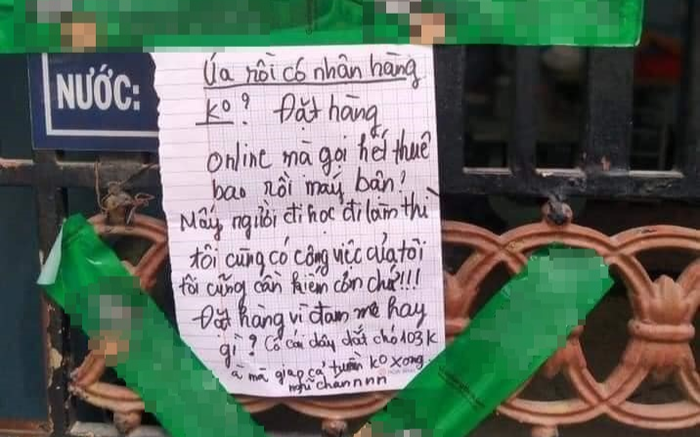 NƯỚC:
Ủa rồi có nhân hàng
ko? Đặt hàng
online mà gọi hết thuê
bao rồi máy bận!
Mấy người đi học đi làm thì
tôi cũng có công việc của tôi
tôi cũng cần kiếm cơm chứ!!!
Đặt hàng vì đam mê hay
gì? Có cái dây dắt chó 103k
à mà giao cả tuần ko xong.
nghĩ chánnnn